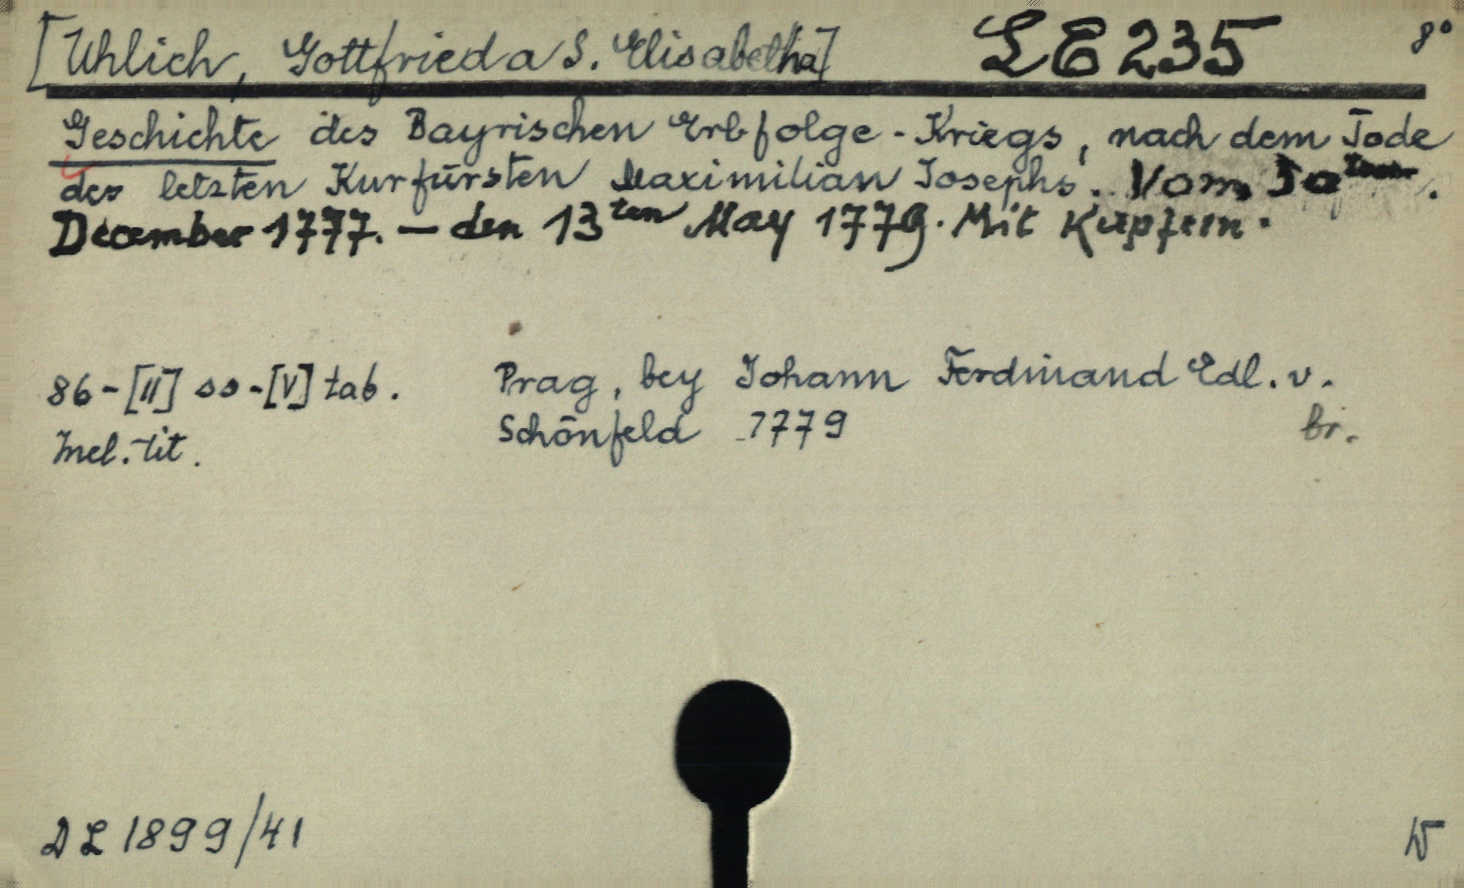 [Uhlich, Gottfried a S. Elisabetha] LE 235 8°
Geschichte des Bayrischen Erbfolge-Kriegs, nach dem Tode
des letzten Kurfürsten Maximilian Josephs. Vom 30ten.
December 1777. — den 13ten May 1779. Mit Kupfern.
86-[II] ss-[V] tab. Prag, bey Johann Ferdinand Edl. v.
Mel. tit. Schönfeld 1779 br.
DL 1899/41